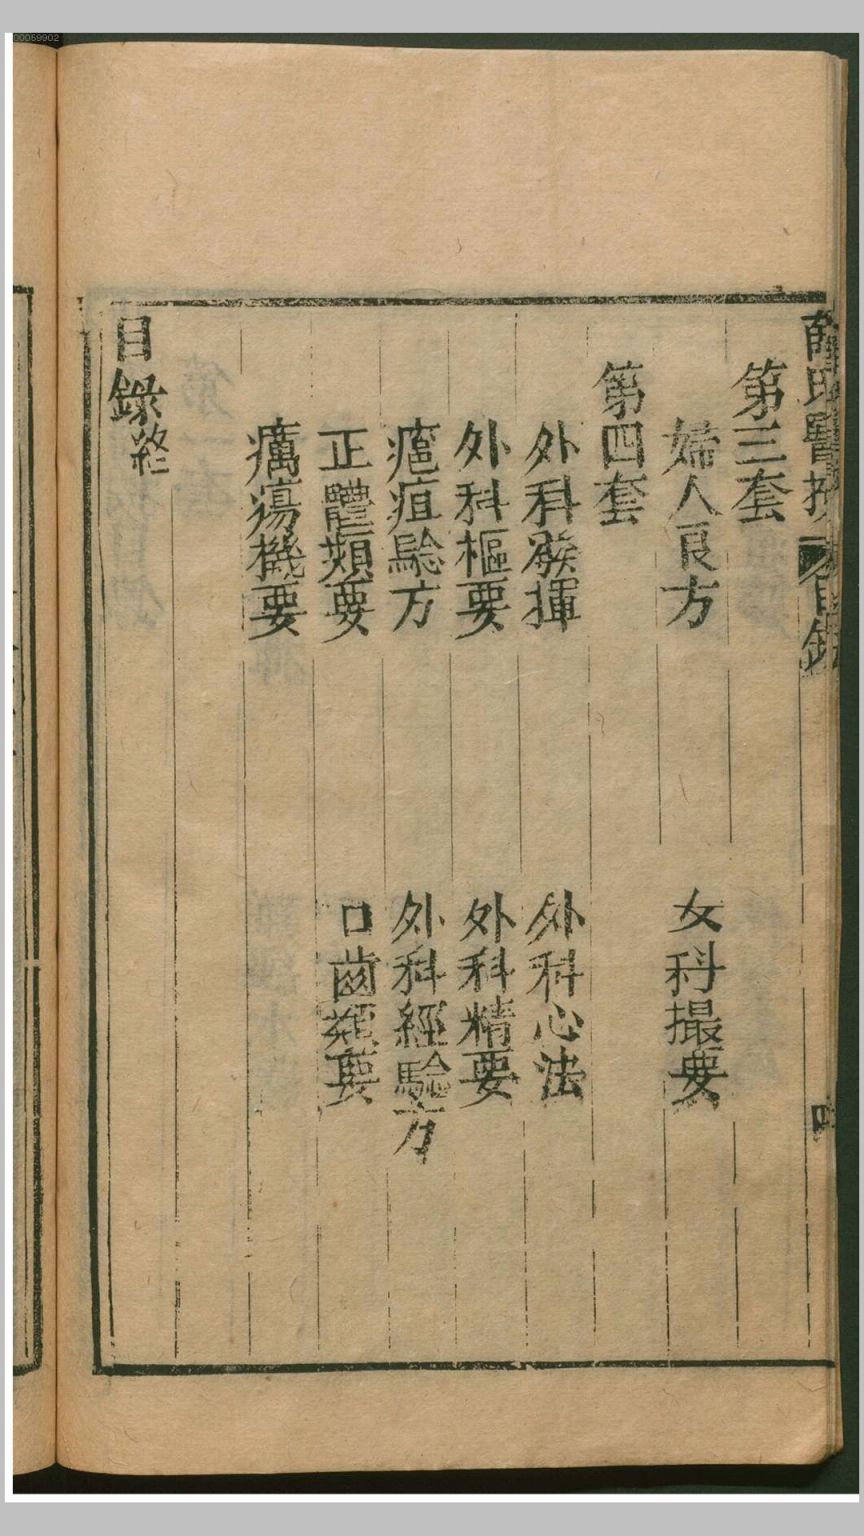 00059902
薛氏醫按 目錄
第三套
婦人良方 女科撮要
第四套
外科發揮 外科心法
外科樞要 外科精要
瘡疽騐方 外科經驗方
正體類要 口齒類要
癘瘍機要
目錄終